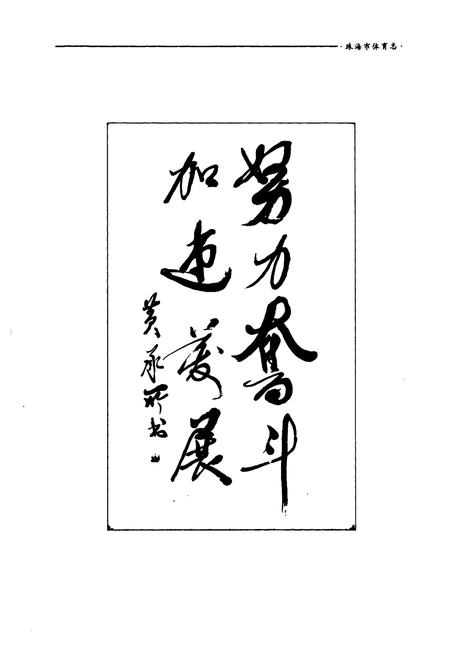 ·珠海市体育志·
努力奋斗
加速发展
黄承所书